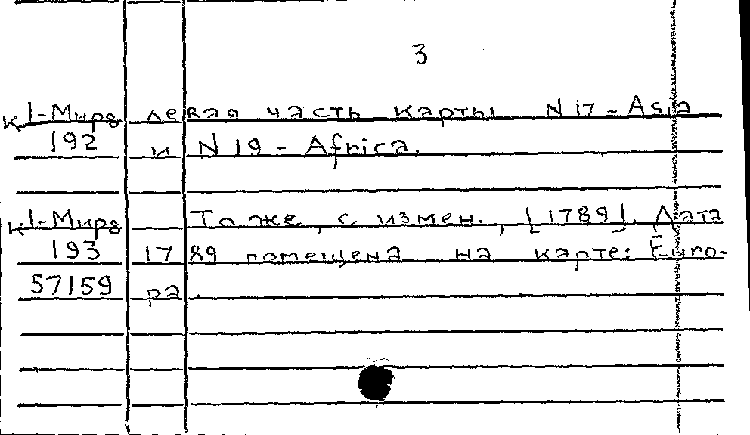 3
К1-Мира левая часть карты N17 - Asia
192 и N 19 - Africa.
К1-Мира То же, с измен., [1789]. Дата
193 1789 помещена на карте: Euro-
57159 pa